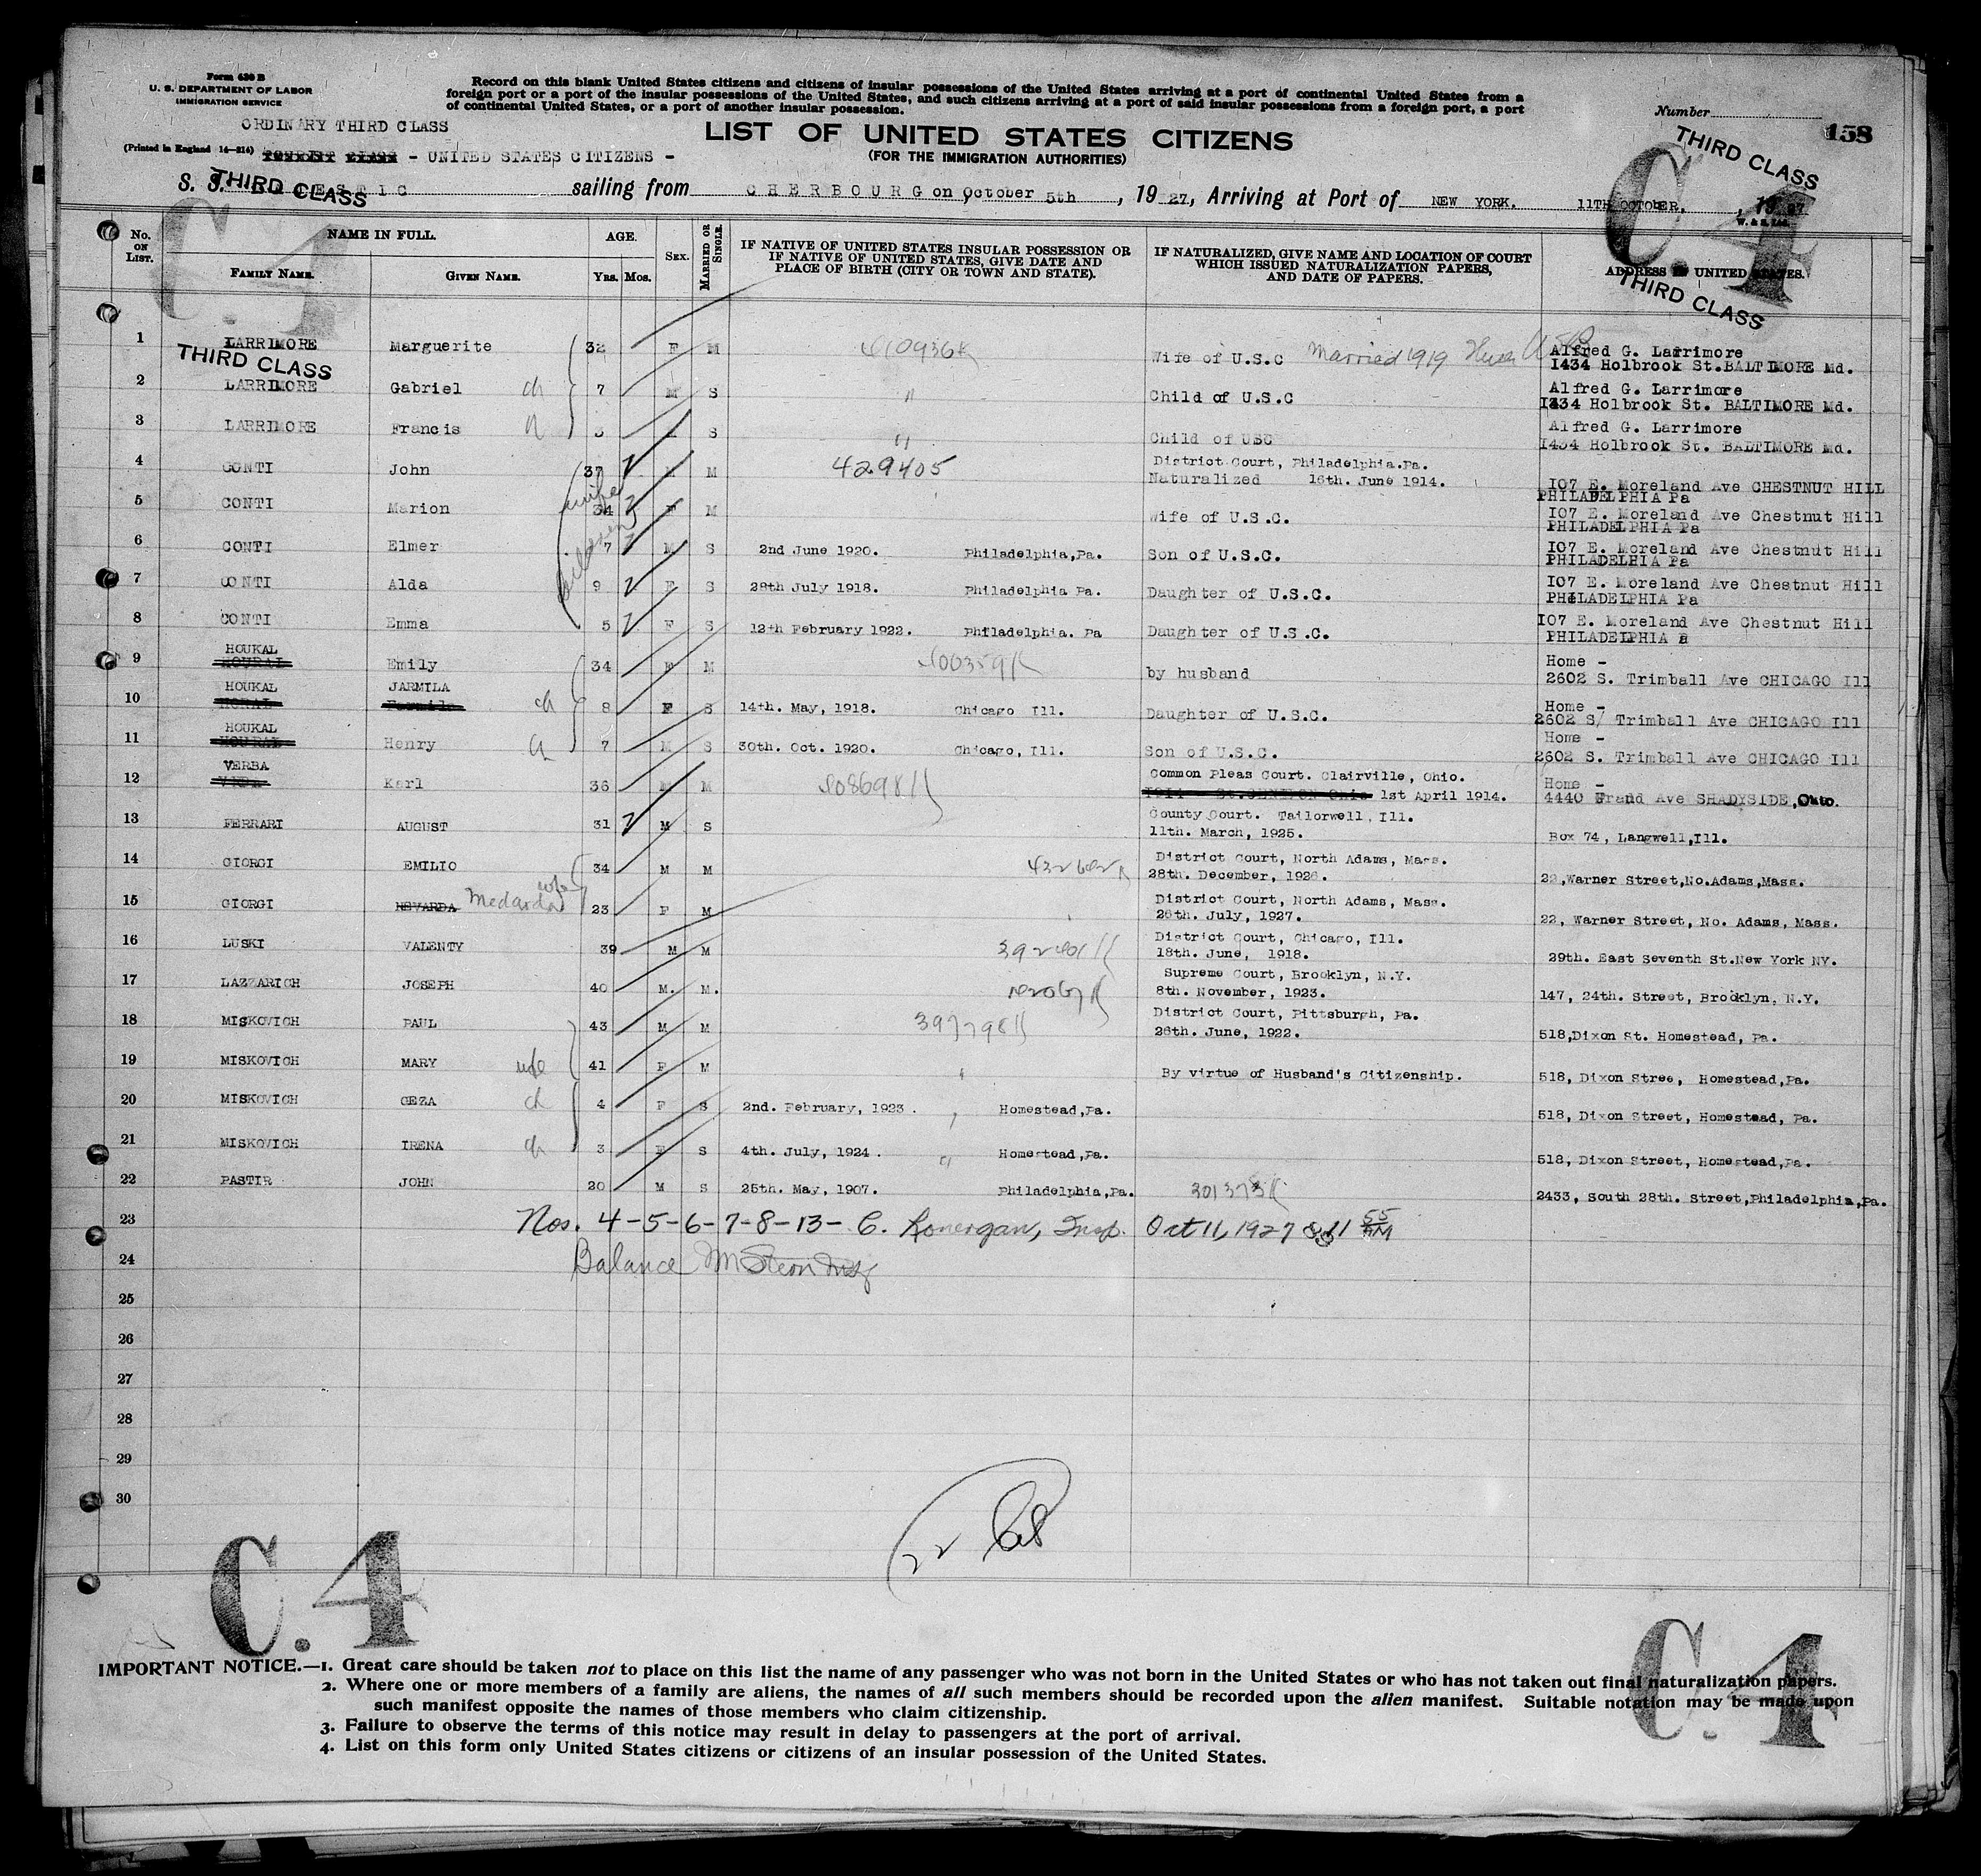 Form 630 B
U. S. DEPARTMENT OF LABOR
IMMIGRATION SERVICE
Record on this blank United States citizens and citizens of insular possessions of the United States arriving at a port of continental United States from a
foreign port or a port of the insular possessions of the United States, and such citizens arriving at a port of said insular possessions from a foreign port, a port
of continental United States, or a port of another insular possession.
Number
158
ORDINARY THIRD CLASS
LIST OF UNITED STATES CITIZENS
(FOR THE IMMIGRATION AUTHORITIES)
(Printed in England 14—214) TOURIST CLASS - UNITED STATES CITIZENS -
THIRD CLASS
C.4
S. S. sailing from CHERBOURG on October 5th, 1927, Arriving at Port of NEW YORK. 11TH OCTOBER, 1927
THIRD CLASS
W. & S. Ltd.
C.4
No. ON LIST.
NAME IN FULL.
FAMILY NAME.
GIVEN NAME.
AGE.
Yrs. Mos.
SEX.
MARRIED OR SINGLE.
IF NATIVE OF UNITED STATES INSULAR POSSESSION OR
IF NATIVE OF UNITED STATES, GIVE DATE AND
PLACE OF BIRTH (CITY OR TOWN AND STATE).
IF NATURALIZED, GIVE NAME AND LOCATION OF COURT
WHICH ISSUED NATURALIZATION PAPERS,
AND DATE OF PAPERS.
ADDRESS IN UNITED STATES.
THIRD CLASS
THIRD CLASS
1 LARRIMORE Marguerite 32 F M Wife of U.S.C Married 1919 Alfred G. Larrimore
1434 Holbrook St. BALTIMORE Md.
2 LARRIMORE Gabriel ch 7 M S " Child of U.S.C Alfred G. Larrimore
1434 Holbrook St. BALTIMORE Md.
3 LARRIMORE Francis ch S " Child of USC Alfred G. Larrimore
1434 Holbrook St. BALTIMORE Md.
4 CONTI John 37 M 429405 District Court, Philadelphia.Pa.
Naturalized 16th. June 1914. 107 E. Moreland Ave CHESTNUT HILL
PHILADELPHIA Pa
5 CONTI Marion wife 34 F M Wife of U.S.C. 107 E. Moreland Ave Chestnut Hill
PHILADELPHIA Pa
6 CONTI Elmer children 7 M S 2nd June 1920. Philadelphia,Pa. Son of U.S.C. 107 E. Moreland Ave Chestnut Hill
PHILADELHIA Pa
7 CONTI Alda 9 F S 28th July 1918. Philadelphia Pa. Daughter of U.S.C. 107 E. Moreland Ave Chestnut Hill
PHILADELPHIA Pa
8 CONTI Emma 5 F S 12th February 1922. Philadelphia. Pa Daughter of U.S.C. 107 E. Moreland Ave Chestnut Hill
PHILADELPHIA
9 HOUKAL Emily 34 F M by husband Home -
2602 S. Trimball Ave CHICAGO Ill
10 HOUKAL JARMILA ch 8 F S 14th. May, 1918. Chicago Ill. Daughter of U.S.C. Home -
2602 S/ Trimball Ave CHICAGO Ill
11 HOUKAL Henry ch 7 M S 30th. Oct. 1920. Chicago, Ill. Son of U.S.C. Home -
2602 S. Trimball Ave CHICAGO Ill
12 VERBA Karl 36 M M Common Pleas Court. Clairville, Ohio.
1st April 1914. Home -
4440 Grand Ave SHADYSIDE, Ohio.
13 FERRARI AUGUST 31 M S County Court. Tailorwell, Ill.
11th. March, 1925. Box 74, Langwell,Ill.
14 GIORGI EMILIO 34 M M District Court, North Adams, Mass.
28th. December, 1926. 22,Warner Street,No.Adams,Mass.
15 GIORGI NEVARDA Medarda wife 23 F M District Court, North Adams, Mass.
26th. July, 1927. 22, Warner Street, No. Adams, Mass.
16 LUSKI VALENTY 39 M M District Court, Chicago, Ill.
18th. June, 1918. 29th. East Seventh St.New York NY.
17 LAZZARICH JOSEPH 40 M. M. Supreme Court, Brooklyn, N.Y.
8th. November, 1923. 147, 24th. Street, Brooklyn, N.Y.
18 MISKOVICH PAUL 43 M M 397798 District Court, Pittsburgh, Pa.
26th. June, 1922. 518,Dixon St. Homestead, Pa.
19 MISKOVICH MARY wife 41 F M By virtue of Husband's Citizenship. 518, Dixon Stree, Homestead,Pa.
20 MISKOVICH GEZA ch 4 F S 2nd. February, 1923. Homestead,Pa. 518, Dixon Street, Homestead, Pa.
21 MISKOVICH IRENA ch 3 F S 4th. July, 1924. " Homestead,Pa. 518, Dixon Street, Homestead,Pa.
22 PASTIR JOHN 20 M S 25th. May, 1907. Philadelphia,Pa. 2433, South 28th. Street,Philadelphia,Pa.
23 Nos. 4-5-6-7-8-13- C. Lonergan, Insp. Oct 11, 1927
24 Balance
25
26
27
28
29
30
22
C.4
C.4
IMPORTANT NOTICE.—1. Great care should be taken not to place on this list the name of any passenger who was not born in the United States or who has not taken out final naturalization papers.
2. Where one or more members of a family are aliens, the names of all such members should be recorded upon the alien manifest. Suitable notation may be made upon
such manifest opposite the names of those members who claim citizenship.
3. Failure to observe the terms of this notice may result in delay to passengers at the port of arrival.
4. List on this form only United States citizens or citizens of an insular possession of the United States.